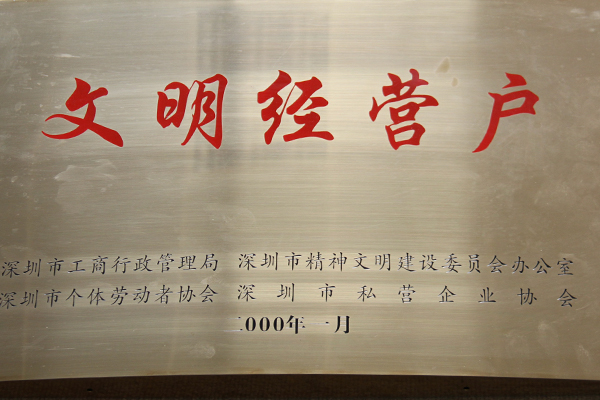 文明经营户
深圳市工商行政管理局 深圳市精神文明建设委员会办公室
深圳市个体劳动者协会 深圳市私营企业协会
二000年一月